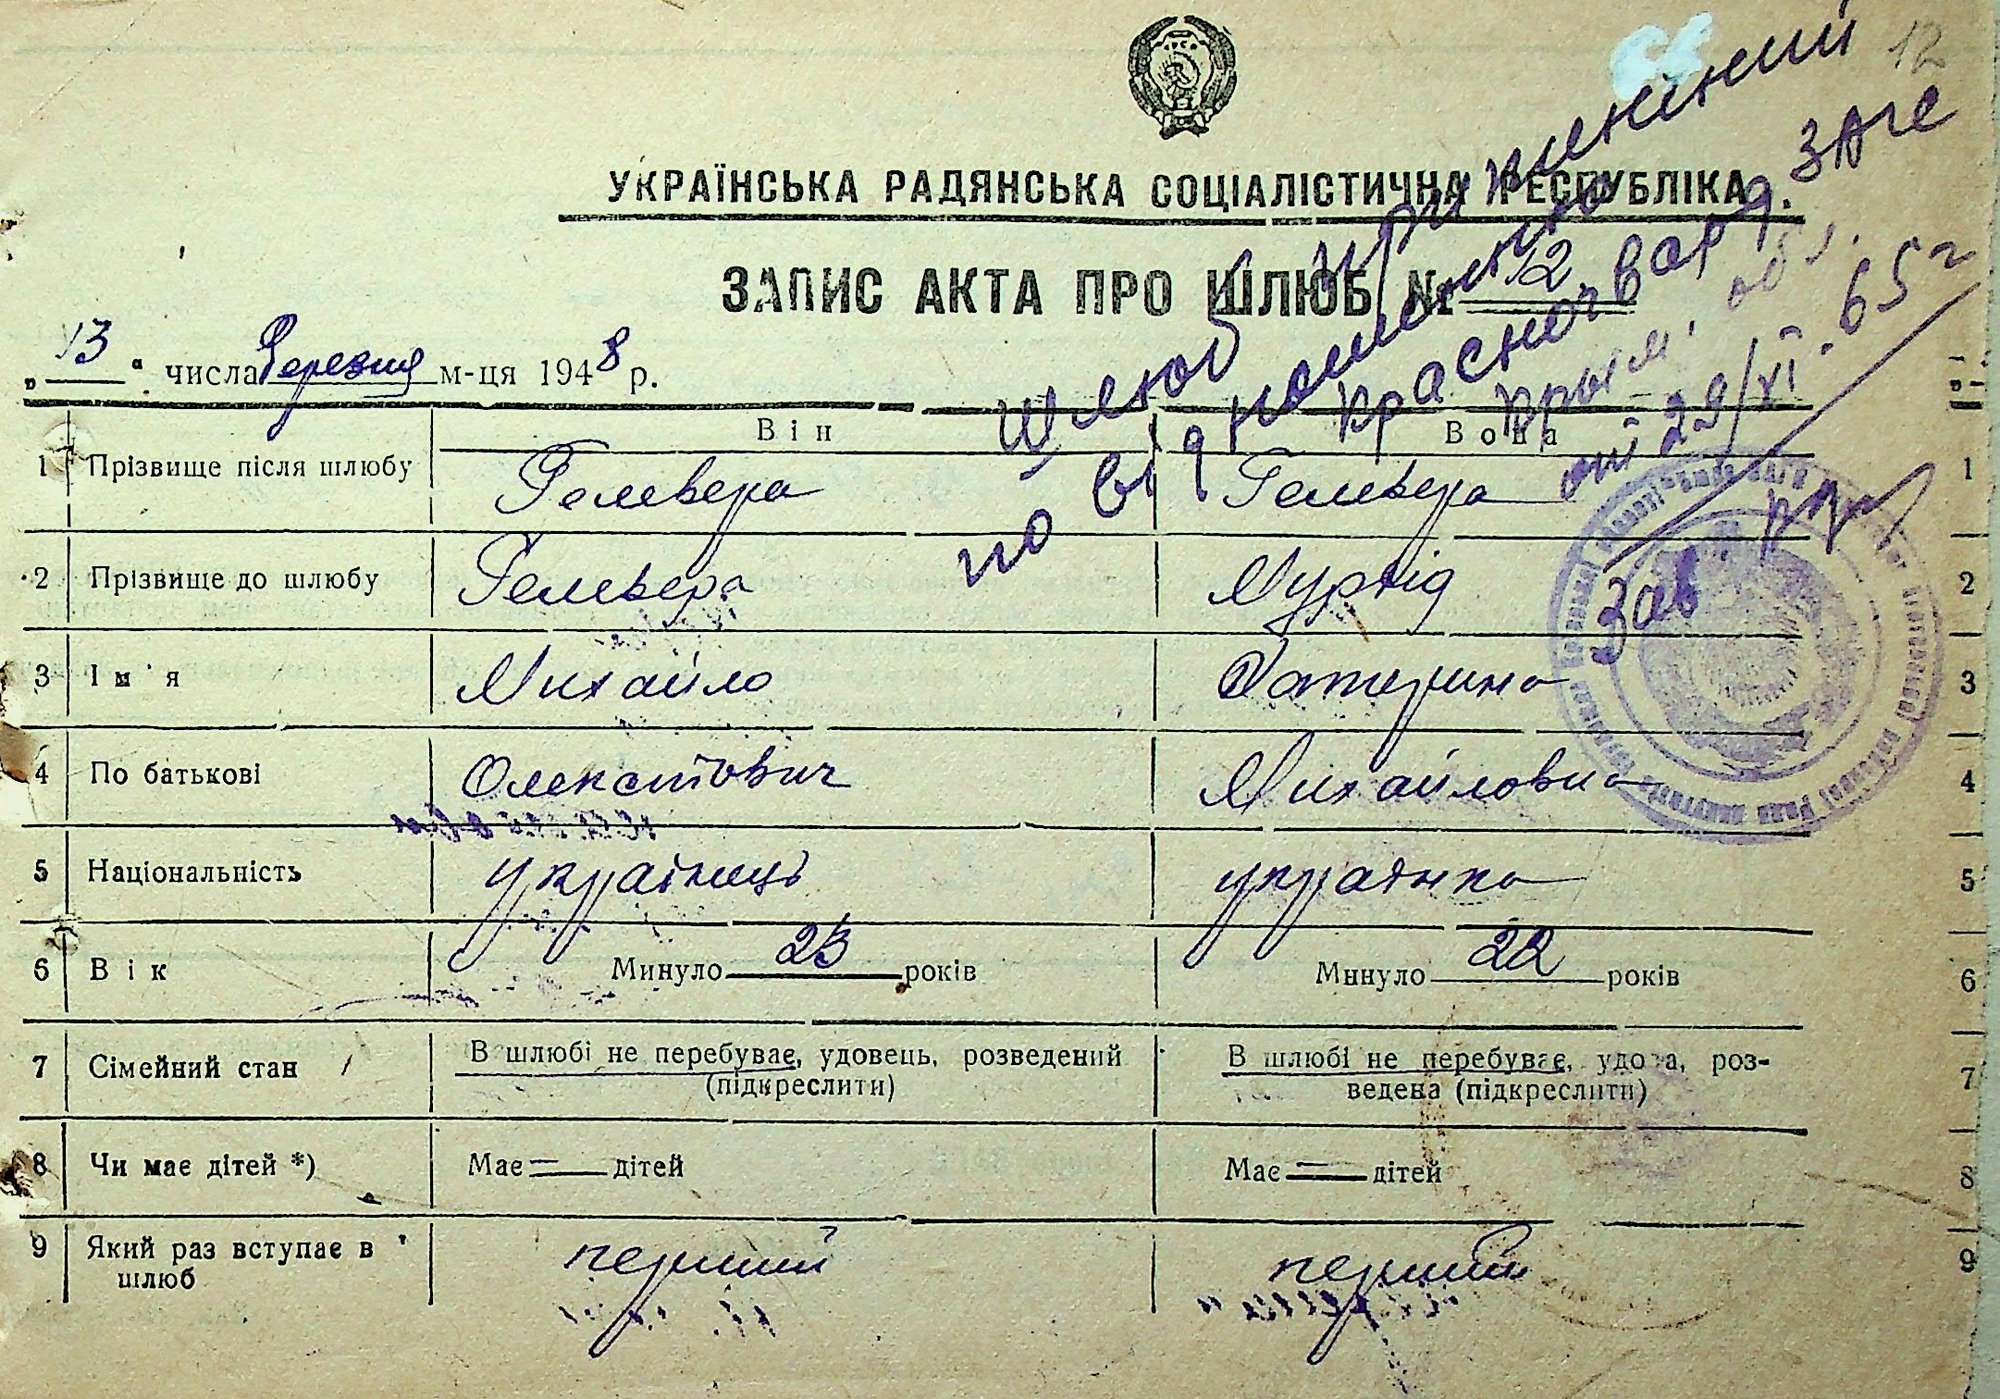 12
УКРАЇНСЬКА РАДЯНСЬКА СОЦІАЛІСТИЧНА РЕСПУБЛІКА
ЗАПИС АКТА ПРО ШЛЮБ № 12
„13“ числа Березня м-ця 1948 р.
Шлюб припинений
по відношенню
Красногвард. ЗАГС
Крым. обл.
від 29/XI. 65 г
Зав.
Він Вона
1 Прізвище після шлюбу Гелевера Гелевера 1
2 Прізвище до шлюбу Гелевера Мурнід 2
3 Ім'я Михайло Катерина 3
4 По батькові Олексійович Михайловна 4
5 Національність українець українка 5
6 Вік Минуло 23 років Минуло 22 років 6
7 Сімейний стан В шлюбі не перебуває, удовець, розведений В шлюбі не перебуває, удова, роз- 7
(підкреслити) ведена (підкреслити)
8 Чи має дітей *) Має = дітей Має = дітей 8
9 Який раз вступає в перший перший 9
шлюб